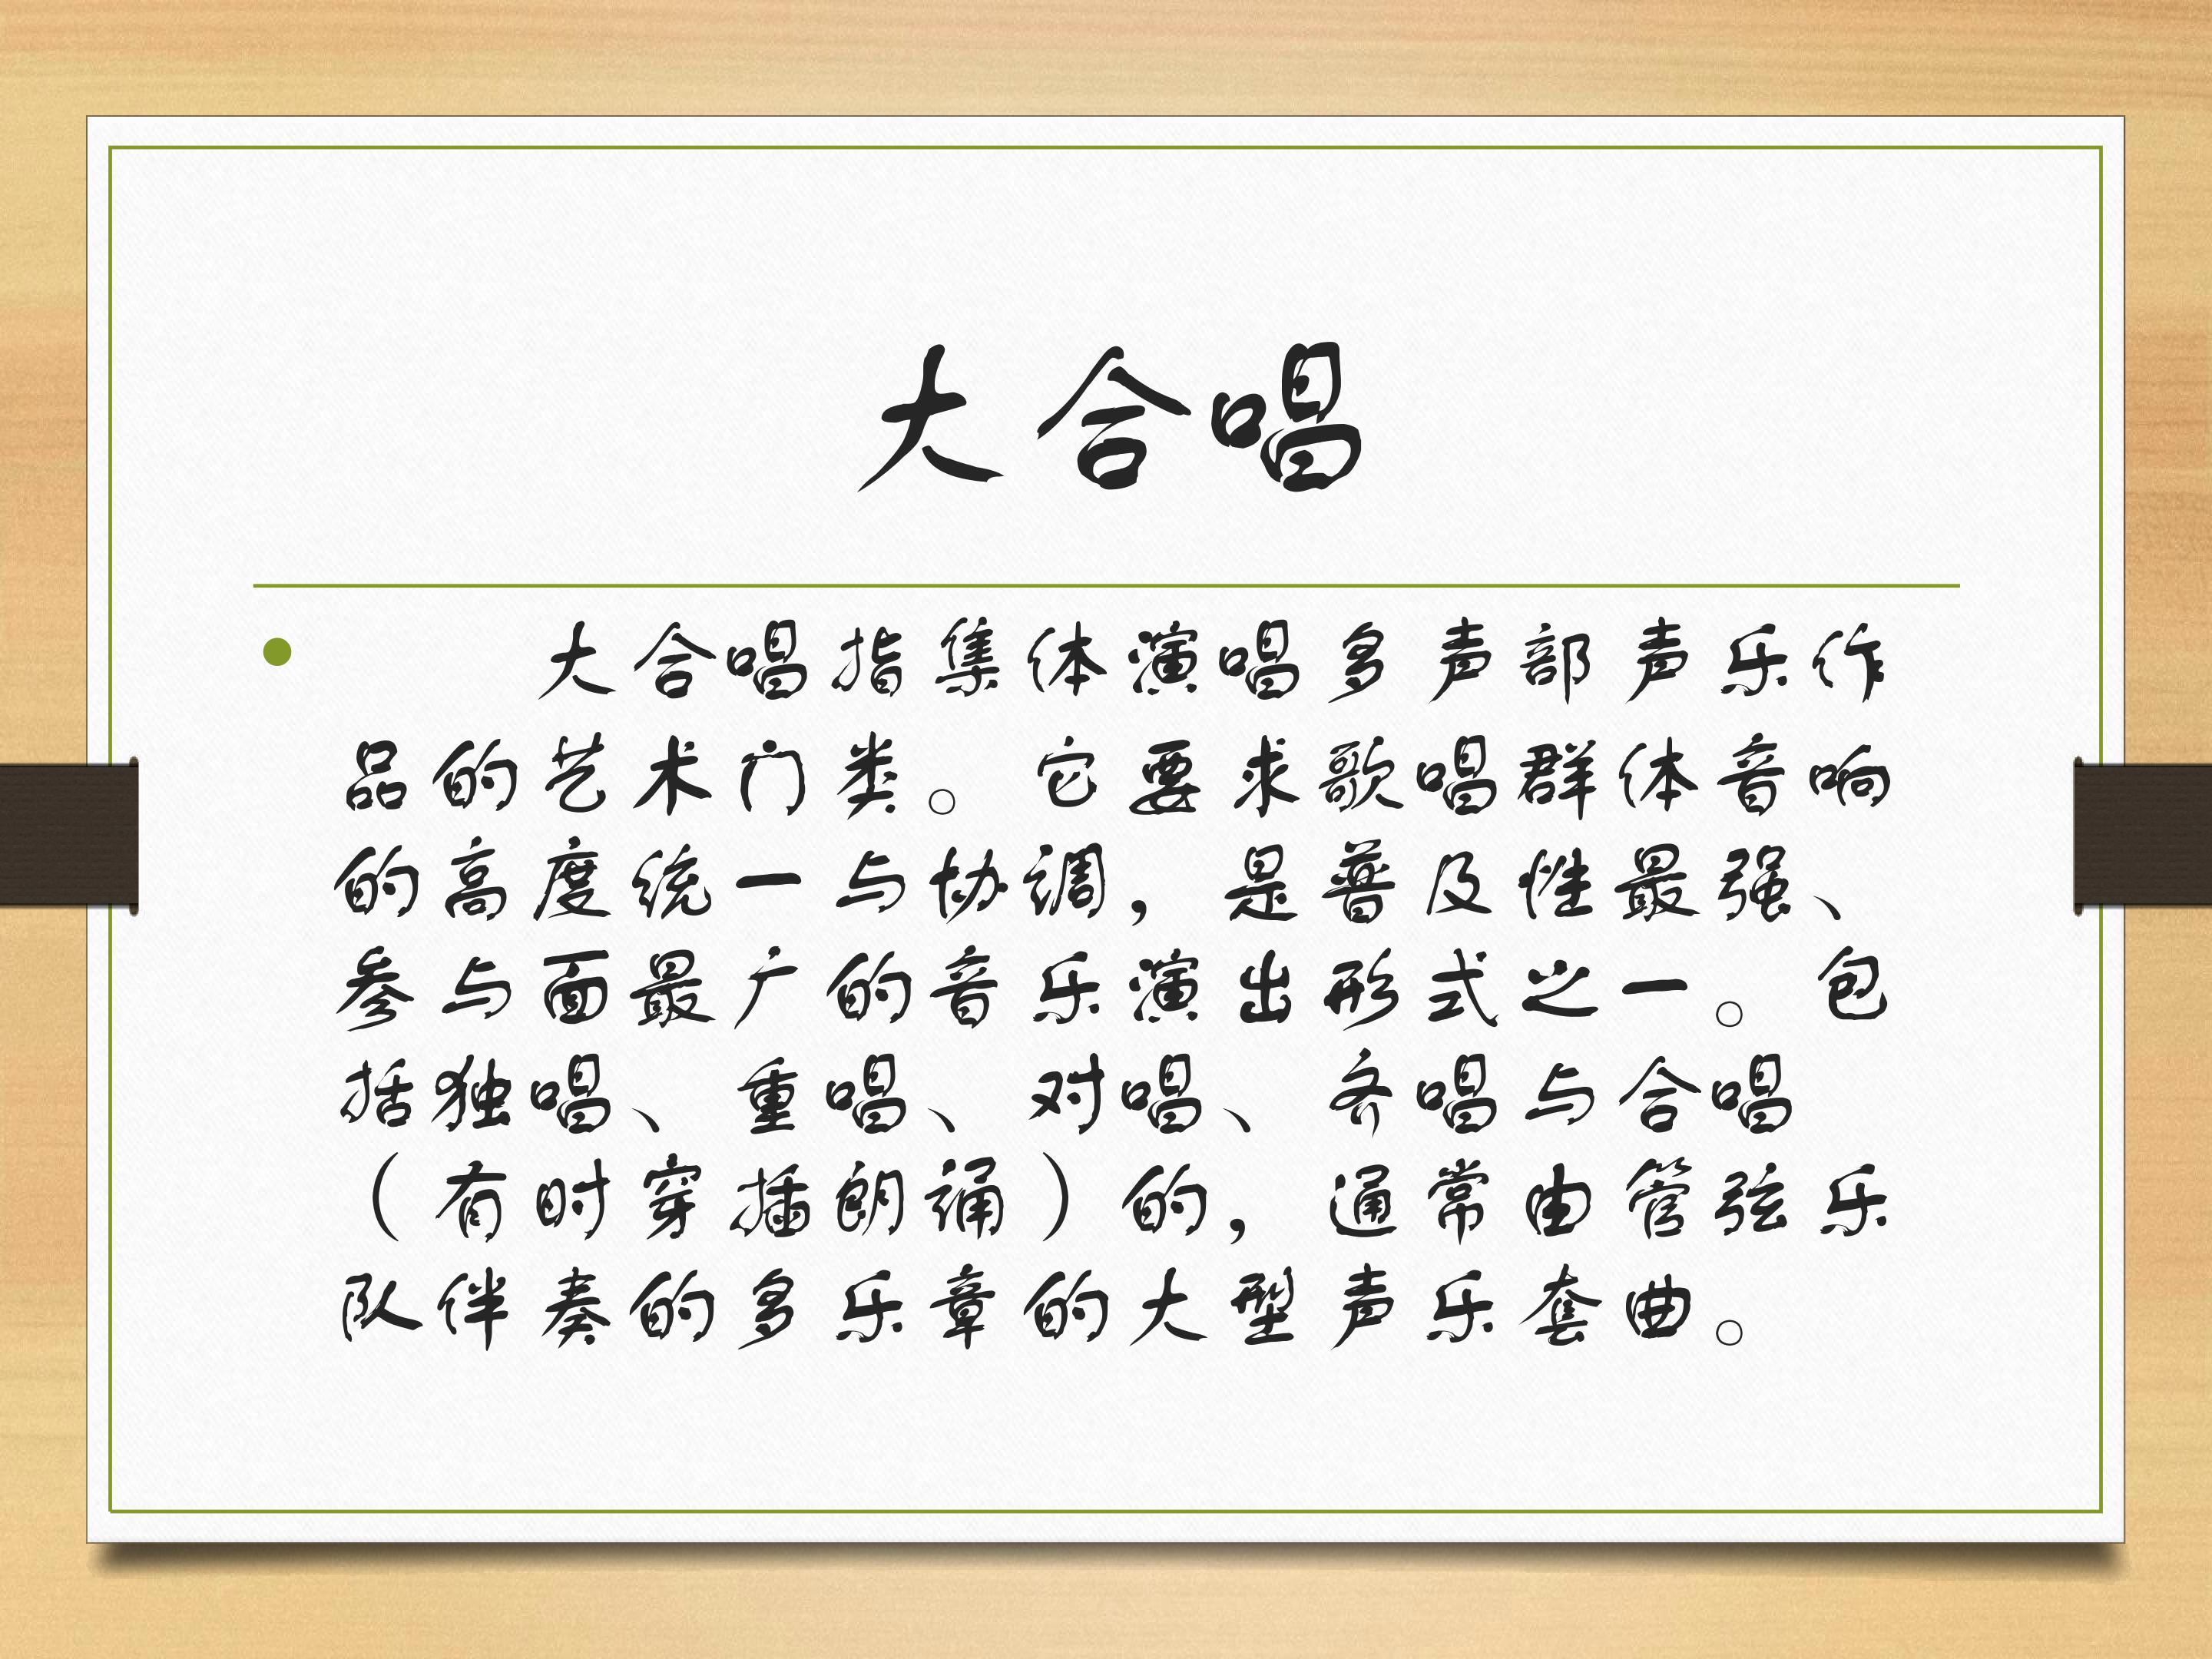 大合唱
大合唱指集体演唱多声部声乐作
品的艺术门类。它要求歌唱群体音响
的高度统一与协调，是普及性最强、
参与面最广的音乐演出形式之一。包
括独唱、重唱、对唱、齐唱与合唱
（有时穿插朗诵）的，通常由管弦乐
队伴奏的多乐章的大型声乐套曲。